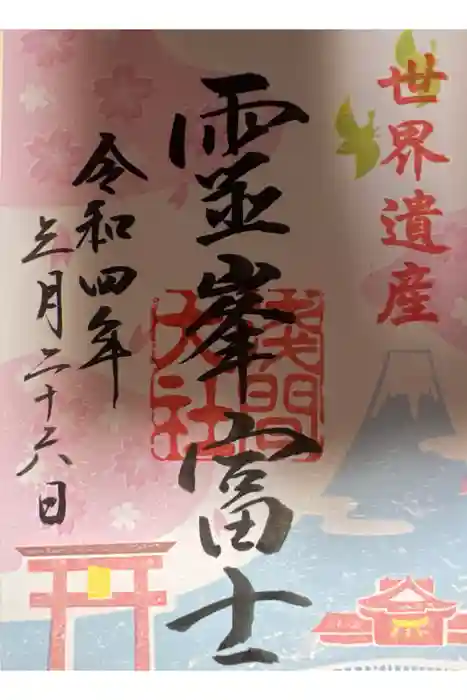 世界遺産
靈峯富士
浅間大社
令和四年
三月二十六日